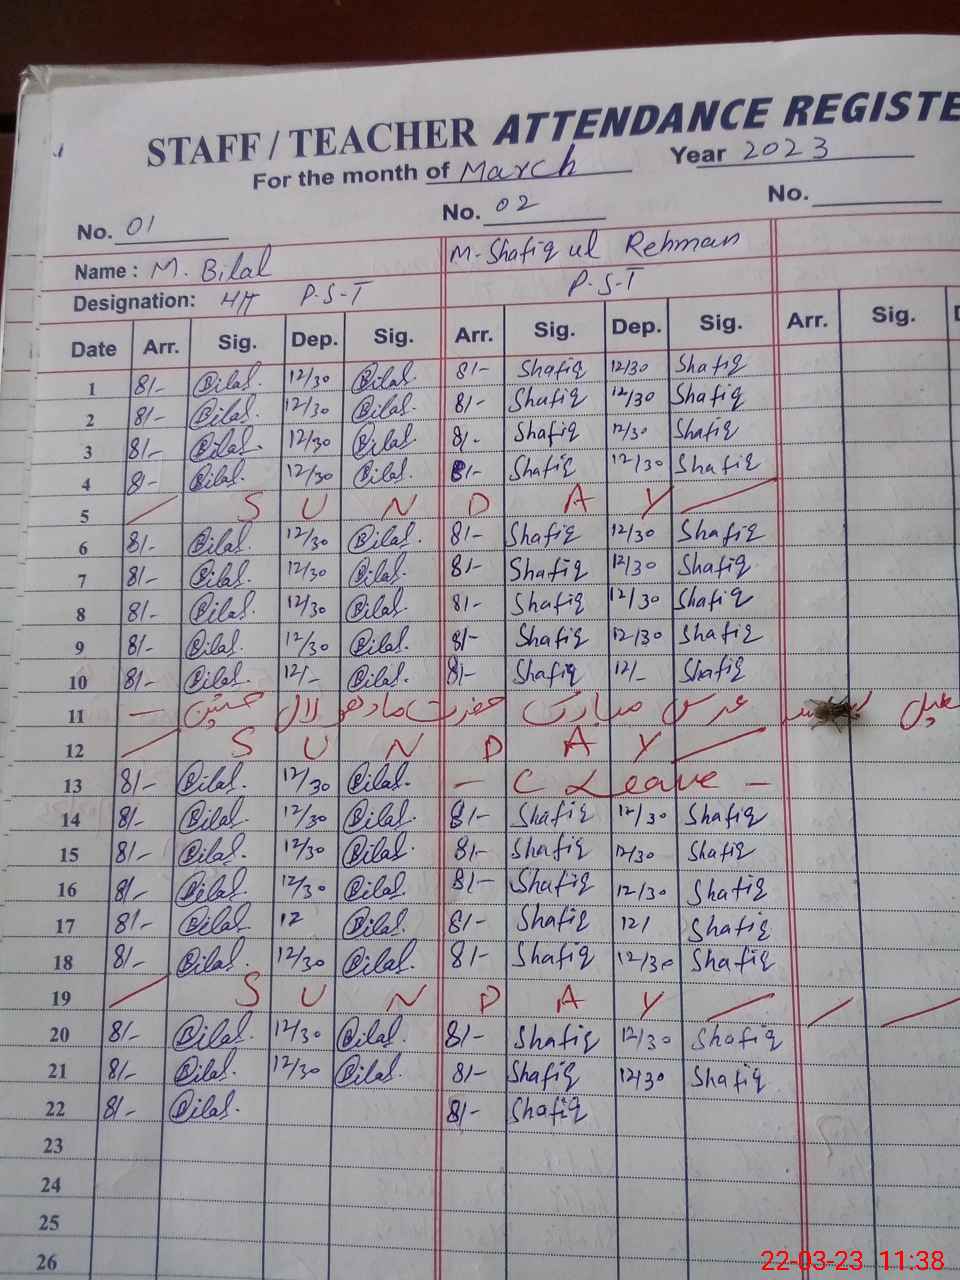 STAFF / TEACHER ATTENDANCE REGISTE
For the month of March Year 2023
No. 01 No. 02 No.
Name : M. Bilal M. Shafiq ul Rehman
Designation: HT P.S.T P.S.T
Date Arr. Sig. Dep. Sig. Arr. Sig. Dep. Sig. Arr. Sig. D
1 8/- Bilal. 12/30 Bilal. 8/- Shafiq 12/30 Shafiq
2 8/- Bilal. 12/30 Bilal. 8/- Shafiq 12/30 Shafiq
3 8/- Bilal. 12/30 Bilal. 8/- Shafiq 12/30 Shafiq
4 8/- Bilal. 12/30 Bilal. 8/- Shafiq 12/30 Shafiq
5 / S U N D A Y /
6 8/- Bilal. 12/30 Bilal. 8/- Shafiq 12/30 Shafiq
7 8/- Bilal. 12/30 Bilal. 8/- Shafiq 12/30 Shafiq
8 8/- Bilal. 12/30 Bilal. 8/- Shafiq 12/30 Shafiq
9 8/- Bilal. 12/30 Bilal. 8/- Shafiq 12/30 Shafiq
10 8/- Bilal. 12/- Bilal. 8/- Shafiq 12/- Shafiq
11 — عرس مبارک حضرت مادھو لال حسین
12 / S U N D A Y /
13 8/- Bilal. 12/30 Bilal. — C Leave —
14 8/- Bilal. 12/30 Bilal. 8/- Shafiq 12/30 Shafiq
15 8/- Bilal. 12/30 Bilal. 8/- Shafiq 12/30 Shafiq
16 8/- Bilal. 12/30 Bilal. 8/- Shafiq 12/30 Shafiq
17 8/- Bilal 12 Bilal. 8/- Shafiq 12/ Shafiq
18 8/- Bilal. 12/30 Bilal. 8/- Shafiq 12/30 Shafiq
19 / S U N D A Y / / /
20 8/- Bilal. 12/30 Bilal. 8/- Shafiq 12/30 Shafiq
21 8/- Bilal. 12/30 Bilal. 8/- Shafiq 12/30 Shafiq
22 8/- Bilal. 8/- Shafiq
23
24
25
26
22-03-23 11:38